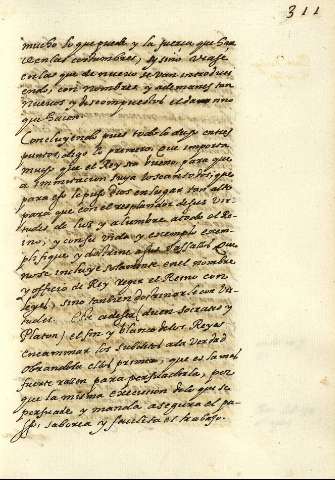 311
mucho lo que puede y la fuerza que haze
en las costumbres, y sino vease
en las que de nuevo se van introduci
endo, con nombres y ademanes tan
nuevos y descompuestos el daño
que hacen.
Concluyendo pues todo lo dicho en tres
puntos, digo lo primero. Que importa
mucho que el Rey sea bueno, para que
a imitacion suya los can
para eso le puso Dios en lugar tan alto
para que con el resplandor de sus vir
tudes de luz y alumbre a todo el Re
ino; y con su vida y exemplo exem
plifique y a sus Vasallos. Que
no se incluye solamente en el nombre
y officio de Rey regir el Reino con
leyes, sino tambien doctrinarle con vir
tudes. Que a de ser (dicen Socrates y
Platon) el fin y blanco de los Reyes
encaminar los subditos a la verdad
obrandola ellos primero, que es la mas
fuerte razon para persuadirla, por
que la misma execucion de lo que se
persuade y manda asegura el pa
so, saborea y facilita el trabajo.